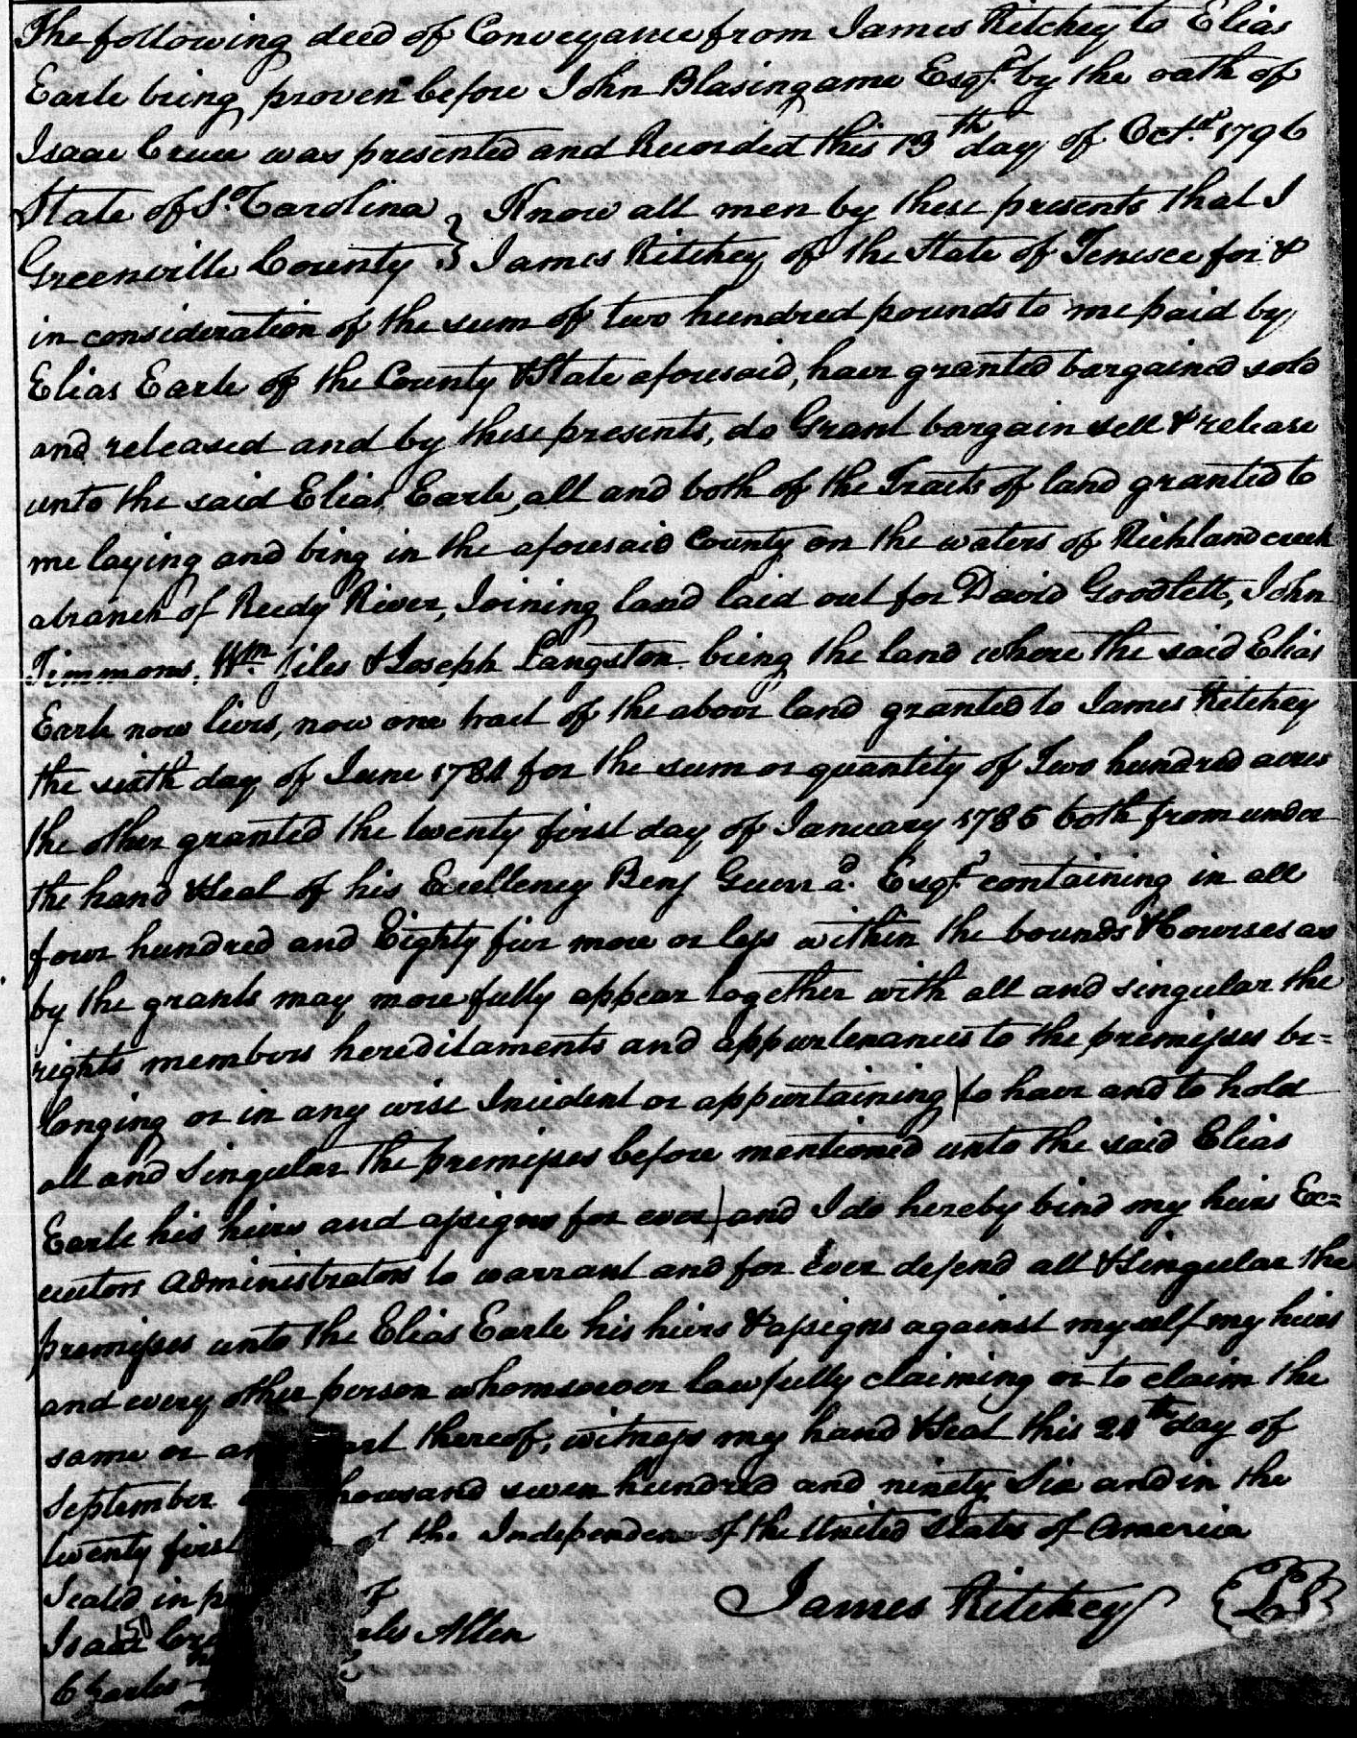 The following deed of Conveyance from James Ritchey to Elias
Earle being proven before John Blasingame Esqr. by the oath of
Isaac Crew was presented and Recorded this 13th day of Octr. 1796
State of So. Carolina } Know all men by these presents that I
Greenville County } James Ritchey of the State of Tenesee for &
in consideration of the sum of two hundred pounds to me paid by
Elias Earle of the County & State aforesaid, have granted bargained sold
and released and by these presents, do Grant bargain sell & release
unto the said Elias Earle, all and both of the Tracts of land granted to
me laying and bing in the aforesaid County on the waters of Richland creek
a branch of Reedy River, Joining land laid out for David Goodlett, John
Timmons, Wm. Jiles & Joseph Langston being the land where the said Elias
Earle now lives, now one tract of the above land granted to James Ritchey
the sixth day of June 1784 for the sum or quantity of Two hundred acres
the other granted the twenty first day of January 1785 both from under
the hand & Seal of his Excellency Benj Guerrad. Esqr. containing in all
four hundred and Eighty five more or less within the bounds & Courses as
by the grants may more fully appear together with all and singular the
rights members hereditaments and appurtenances to the premises be=
longing or in any wise Incident or appurtaining) to have and to hold
all and Singular the premises before mentioned unto the said Elias
Earle his heirs and assigns for ever) and I do hereby bind my heirs Ex=
ecutors Administrators to warrant and for Ever defend all & Singular the
premises unto the Elias Earle his heirs & assigns against myself my heirs
and every other person whomsoever lawfully claiming or to claim the
same or thereof, witness my hand & Seal this day of
September thousand seven hundred and ninety Six and in the
twenty first of the Independence of the United States of America
Sealed in
Isaac Allen James Ritchey LS
Charles